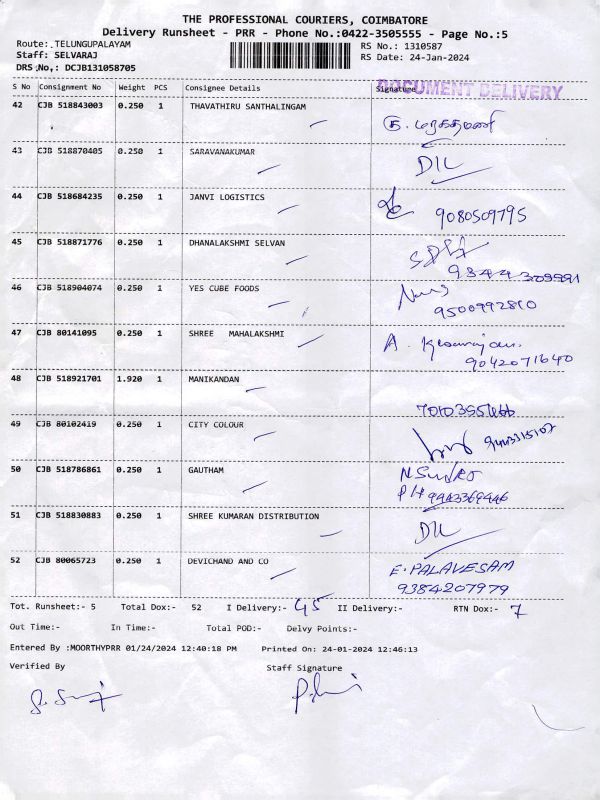 THE PROFESSIONAL COURIERS, COIMBATORE
Delivery Runsheet - PRR - Phone No.:0422-3505555 - Page No.:5
Route: TELUNGUPALAYAM RS No.: 1310587
Staff: SELVARAJ RS Date: 24-Jan-2024
DRS No,: DCJB131058705
DOCUMENT DELIVERY
S No Consignment No Weight PCS Consignee Details Signature
42 CJB 518843003 0.250 1 THAVATHIRU SANTHALINGAM
43 CJB 518870405 0.250 1 SARAVANAKUMAR DIL
44 CJB 518684235 0.250 1 JANVI LOGISTICS
9080509795
45 CJB 518871776 0.250 1 DHANALAKSHMI SELVAN
46 CJB 518904074 0.250 1 YES CUBE FOODS
9500992810
47 CJB 80141095 0.250 1 SHREE MAHALAKSHMI A.
9042071640
48 CJB 518921701 1.920 1 MANIKANDAN
49 CJB 80102419 0.250 1 CITY COLOUR
50 CJB 518786861 0.250 1 GAUTHAM
PH 9443369446
51 CJB 518830883 0.250 1 SHREE KUMARAN DISTRIBUTION DIL
52 CJB 80065723 0.250 1 DEVICHAND AND CO E. PALAVESAM
9384207979
Tot. Runsheet:- 5 Total Dox:- 52 I Delivery:- 45 II Delivery:- RTN Dox:- 7
Out Time:- In Time:- Total POD:- Delvy Points:-
Entered By :MOORTHYPRR 01/24/2024 12:40:18 PM Printed On: 24-01-2024 12:46:13
Verified By Staff Signature